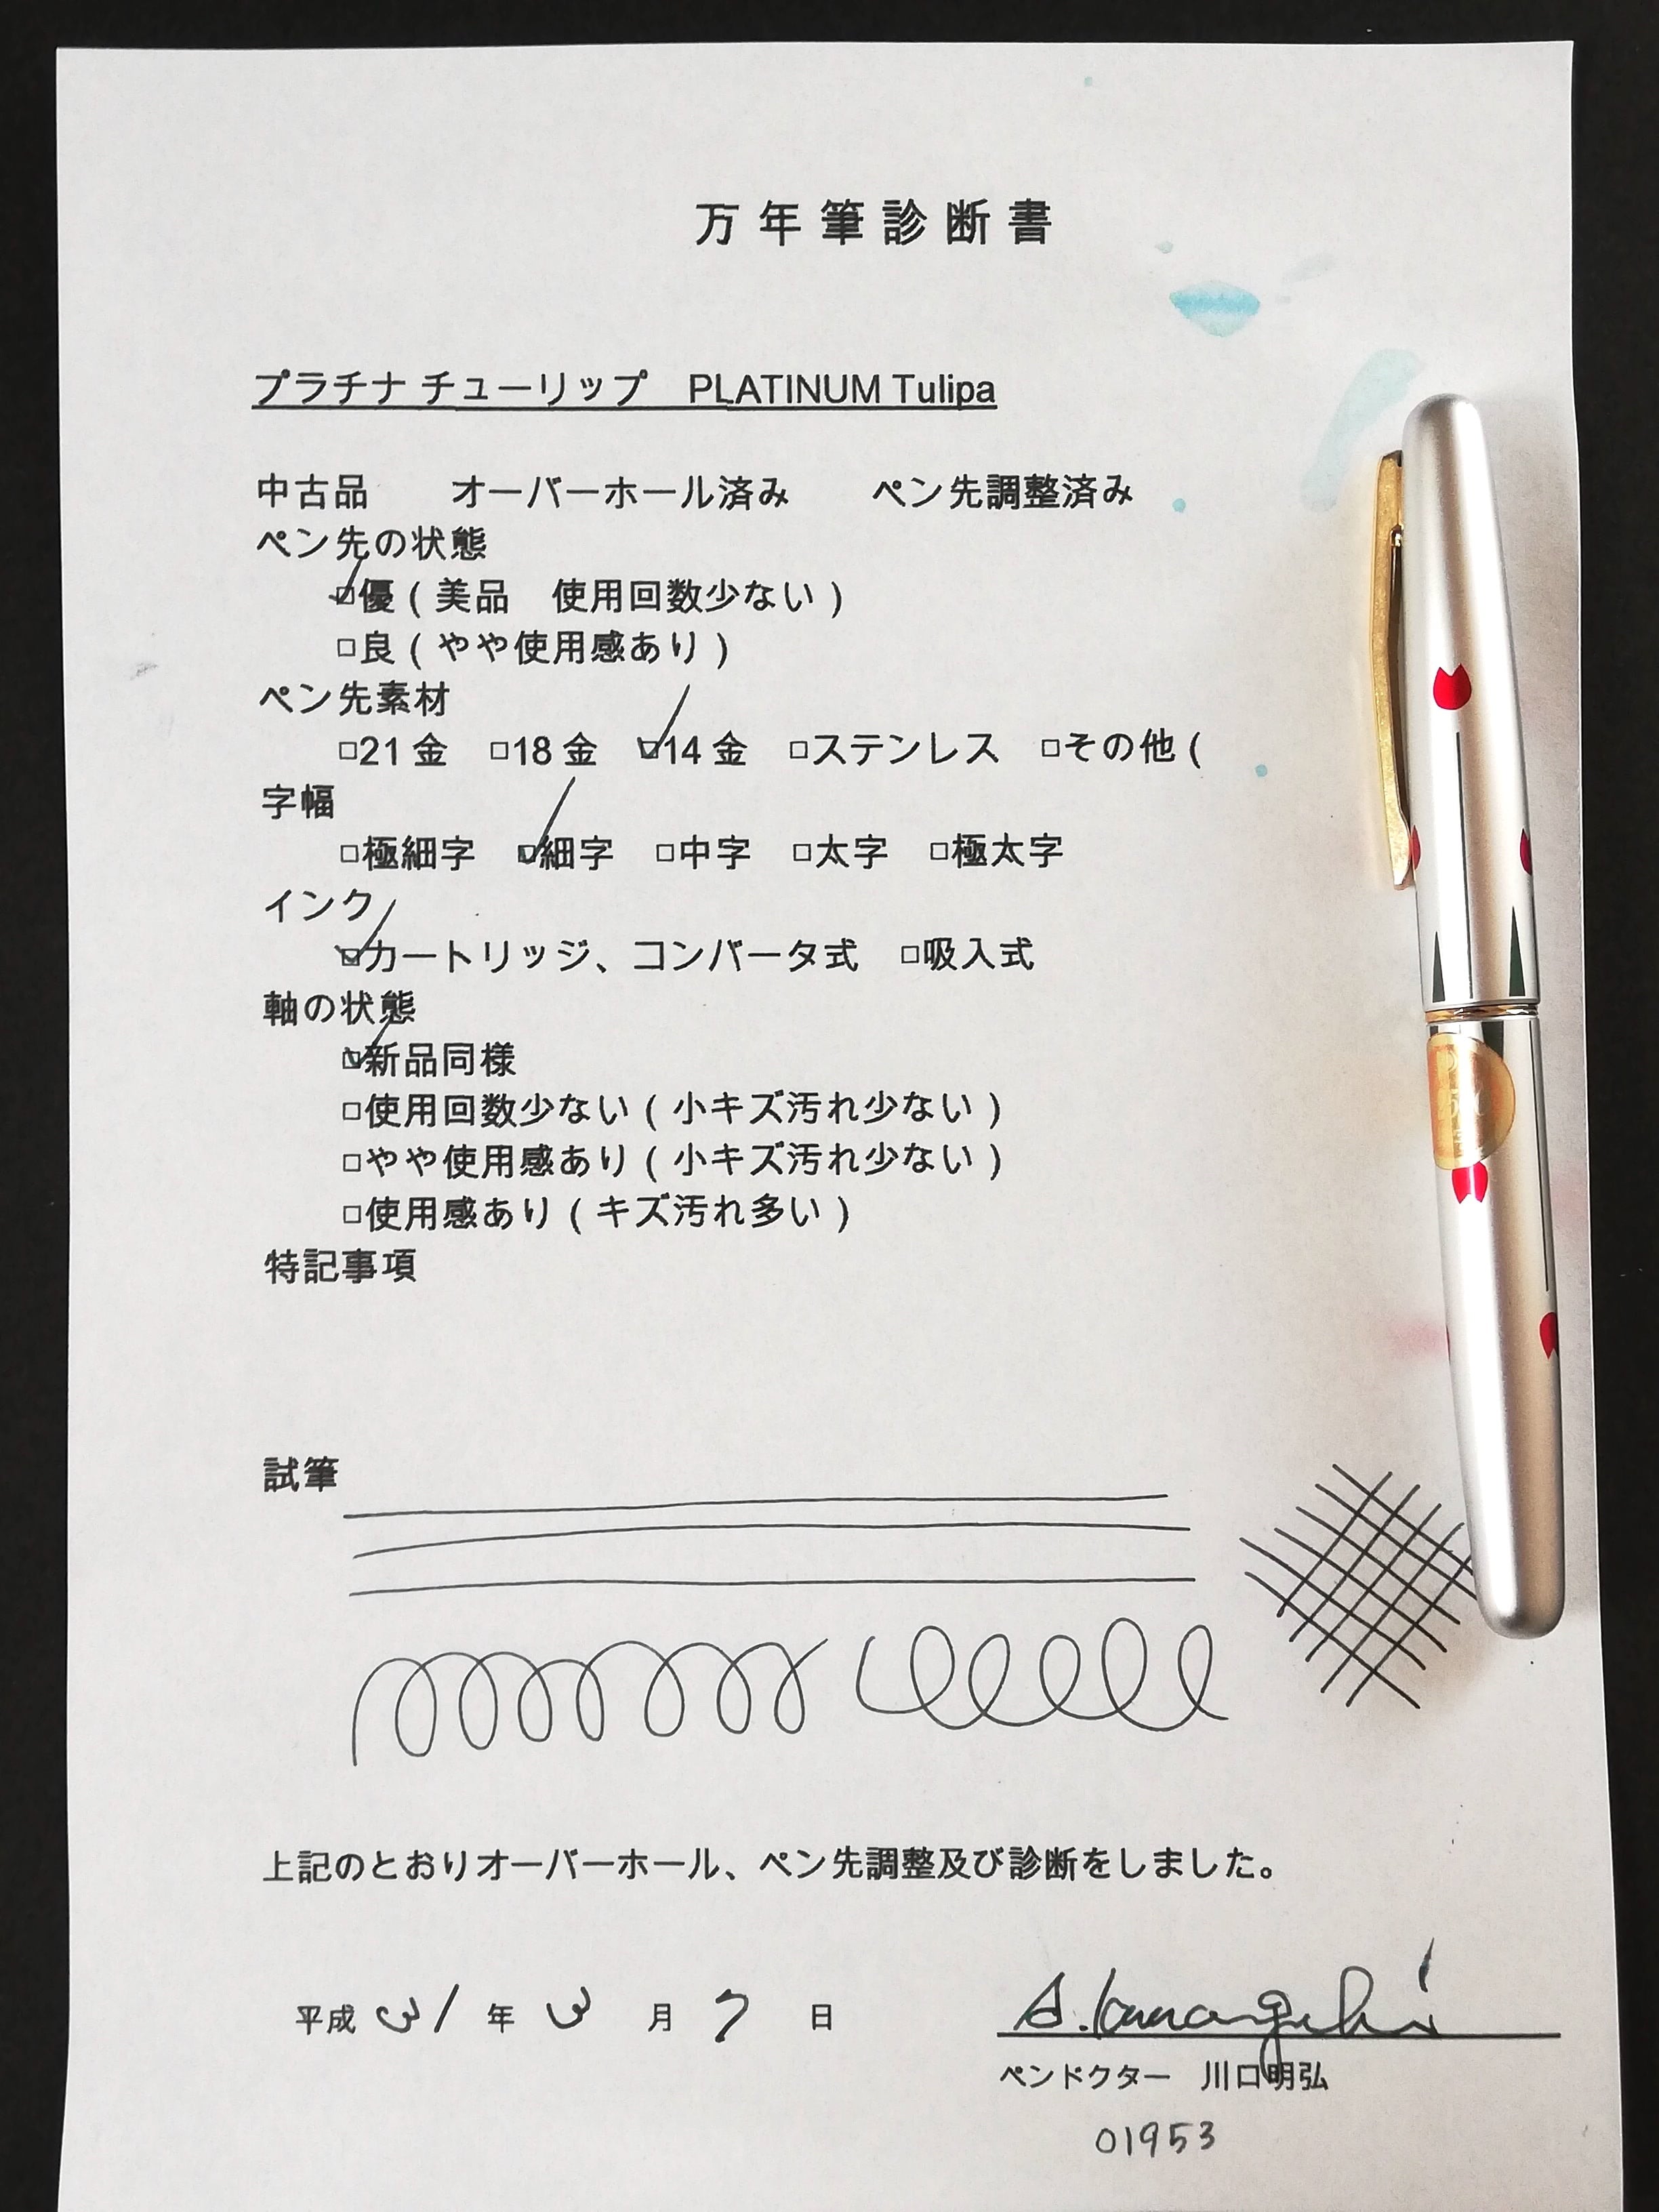 万年筆診断書
プラチナ チューリップ　PLATINUM Tulipa
中古品　　オーバーホール済み　　ペン先調整済み
ペン先の状態
☑優（美品　使用回数少ない）
□良（やや使用感あり）
ペン先素材
□21 金　□18 金　☑14 金　□ステンレス　□その他（
字幅
□極細字　☑細字　□中字　□太字　□極太字
インク
☑カートリッジ、コンバータ式　□吸入式
軸の状態
☑新品同様
□使用回数少ない（小キズ汚れ少ない）
□やや使用感あり（小キズ汚れ少ない）
□使用感あり（キズ汚れ多い）
特記事項
試筆
上記のとおりオーバーホール、ペン先調整及び診断をしました。
平成 31 年 3 月 7 日
ペンドクター　川口明弘
01953